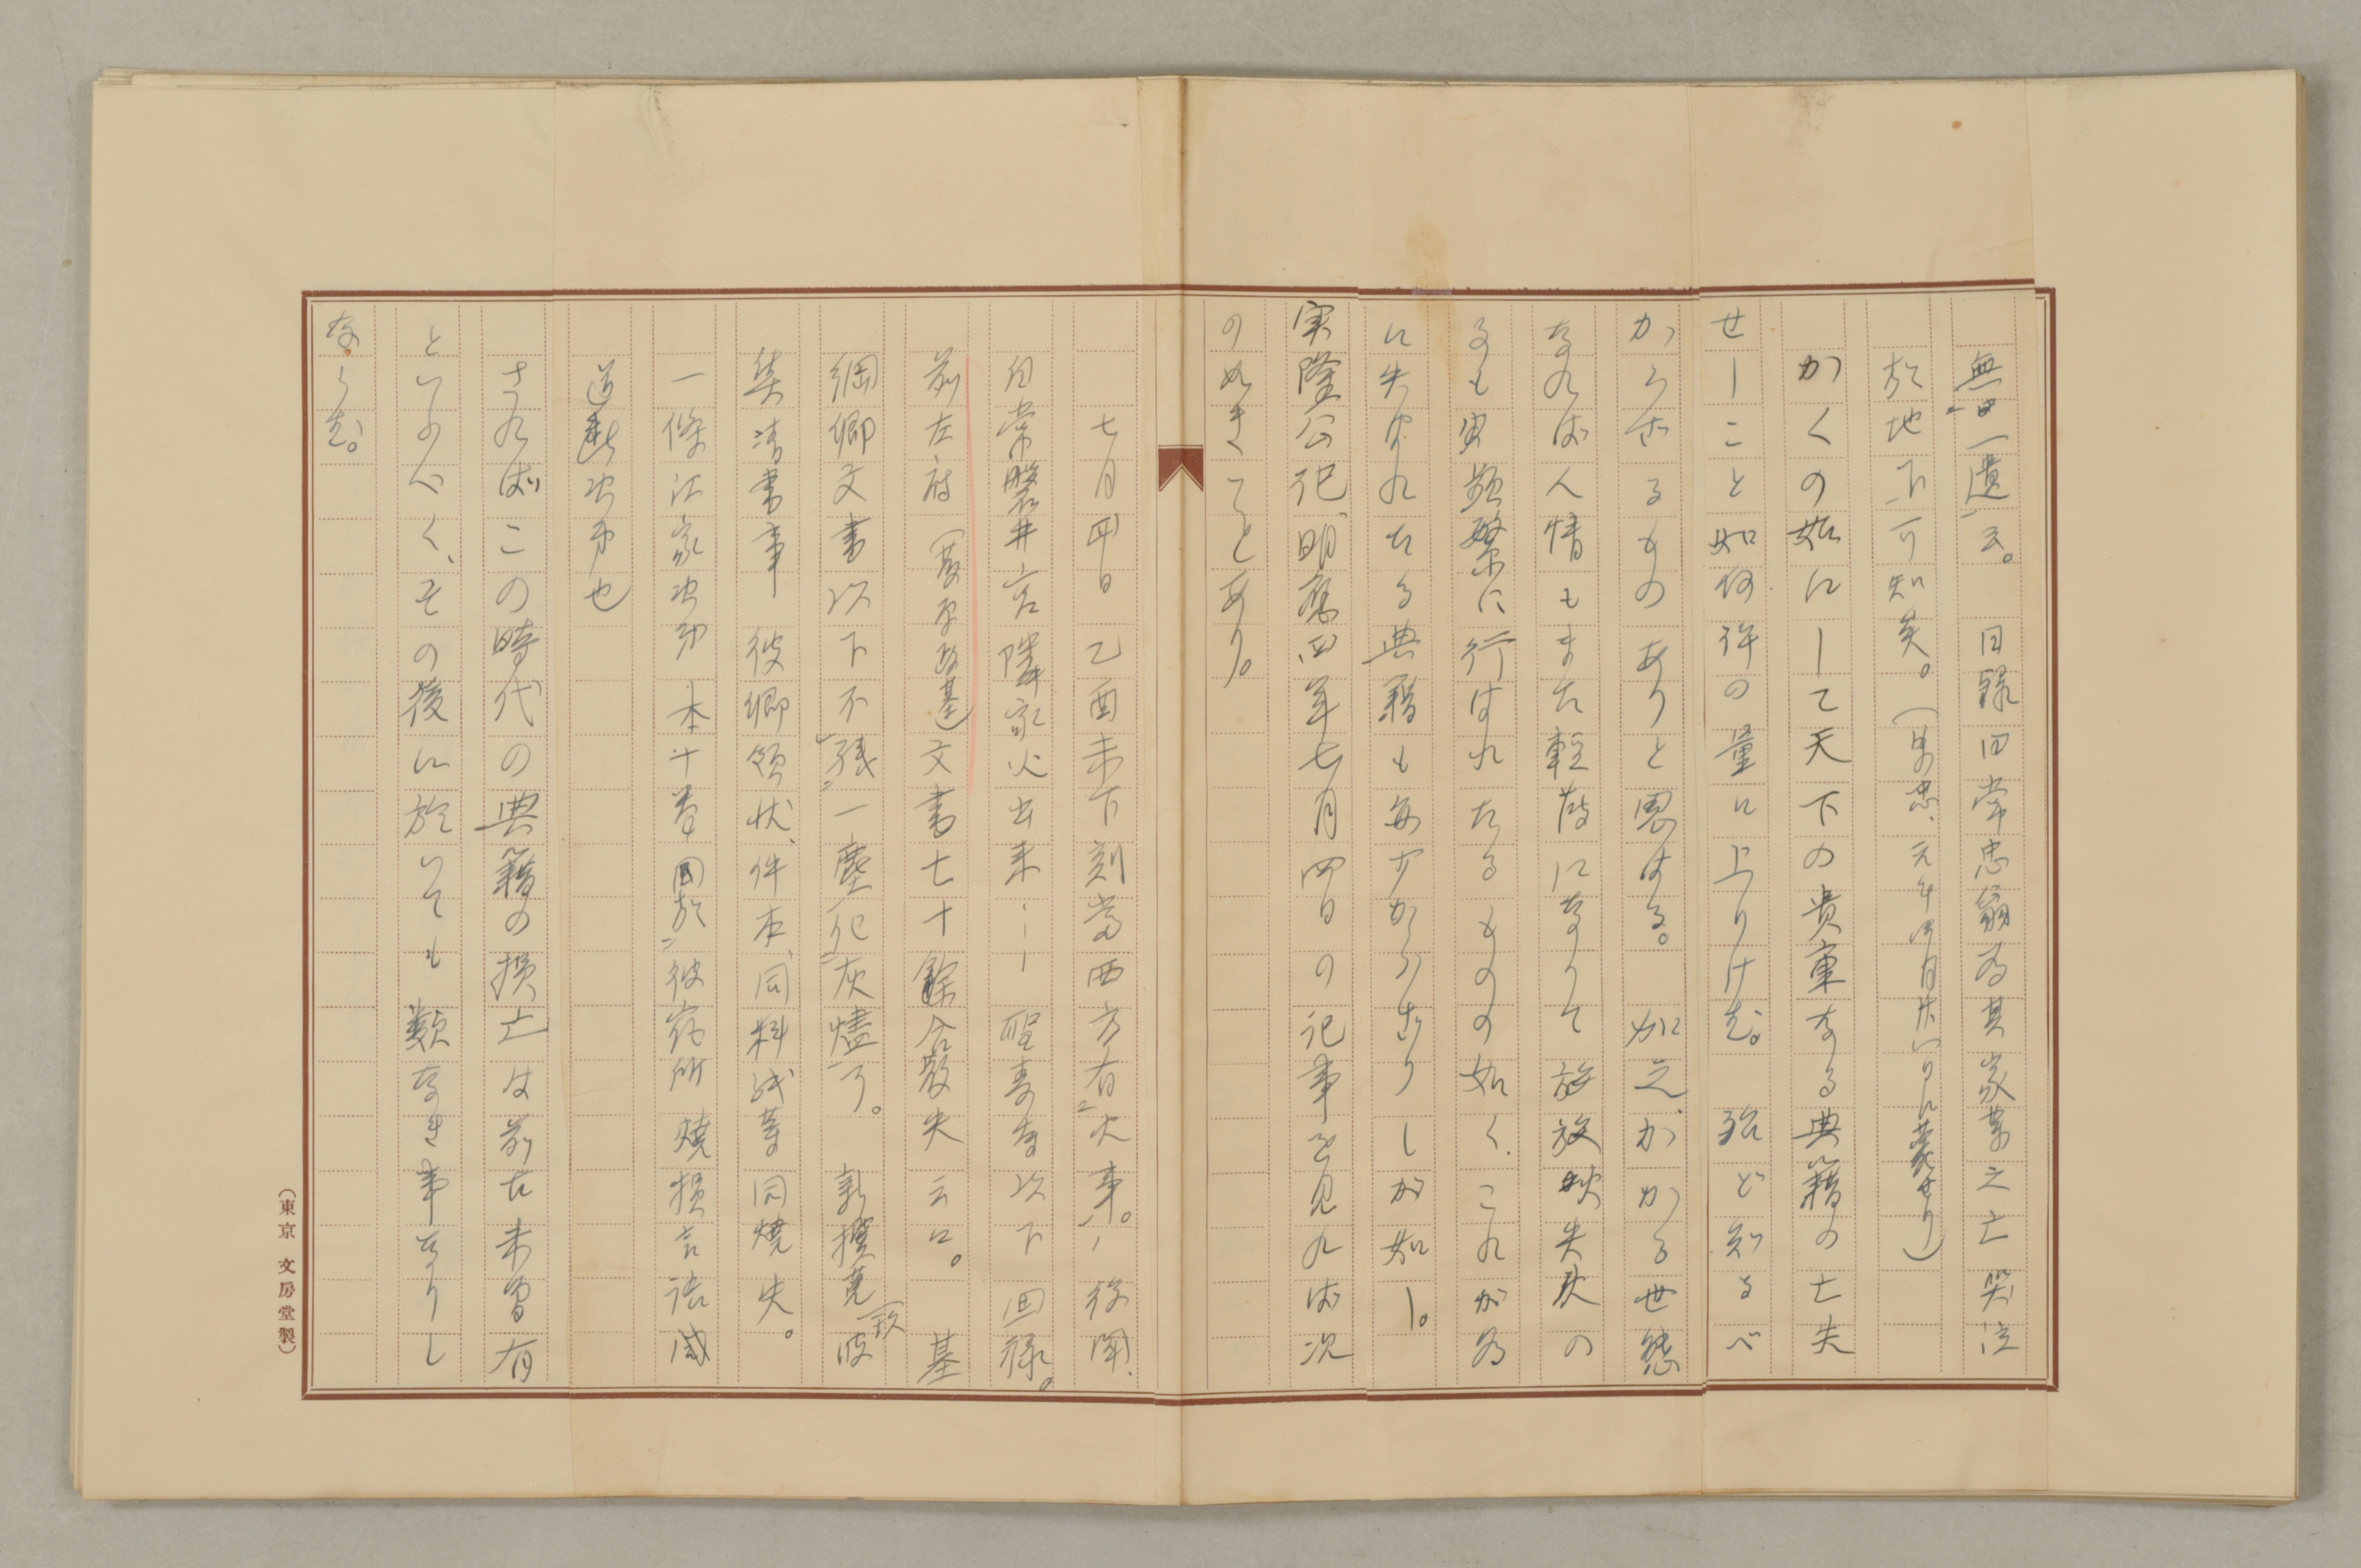 無一遺云。 目録 旧常忠翁為其家業之亡哭泣
於地下可知矣。
かくの如にして天下の貴重なる典籍の亡失
せしこと如何許の量に上りけむ。 殆ど知るべ
からざるものありと思はる。 加之、かかる世態
なれば人情もまた軽薄になりて 放 失 の
るも 頻繁に行はれたるものの如く、これが為
に失はれたる典籍も尠からざりしが如し。
実隆公記、明應四年七月四日の記事を見れば次
の如きことあり。
七月四日 乙酉 未下刻当西方有火事。 後聞、
自常磐井宮隣家火出来 聖寿寺以下回禄。
前左府 文書七十餘合散失云々。 基
綱卿文書以下不残一塵化灰燼了。 新撰菟 (玖) 波
集清書事 彼卿領状、件本、同料紙等同焼失。
一條江家次第 本十巻 同於彼宿所 焼損言語
道断次第也
さればこの時代の典籍の損亡は前古未曽有
といふべく、その後に於いても類なき事なりし
ならむ。
(東京 文房堂製)